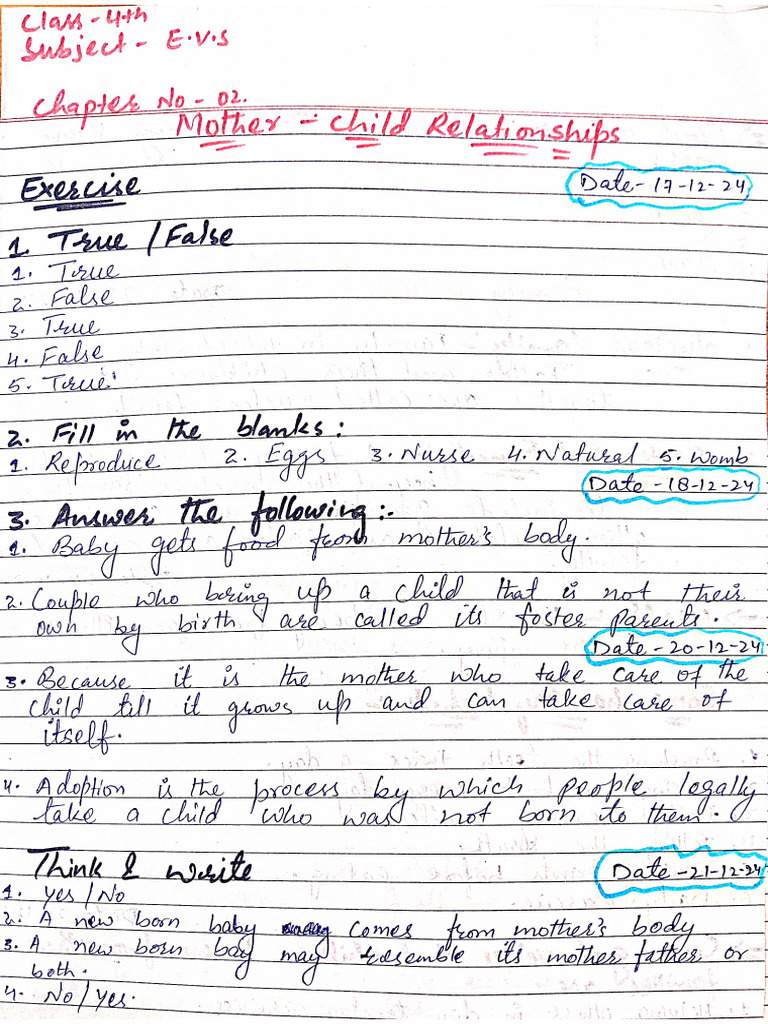 Class - 4th
Subject - E.V.S
Chapter No - 02.
Mother - Child Relationships
Exercise
Date - 17-12-24
1. True / False
1. True
2. False
3. True
4. False
5. True
2. Fill in the blanks :
1. Reproduce 2. Eggs 3. Nurse 4. Natural 5. Womb
Date - 18-12-24
3. Answer the following :-
1. Baby gets food from mother's body.
2. Couple who bring up a child that is not their
own by birth are called its foster parents.
Date - 20-12-24
3. Because it is the mother who take care of the
child till it grows up and can take care of
itself.
4. Adoption is the process by which people legally
take a child who was not born to them.
Think & write
Date - 21-12-24
1. Yes / No
2. A new born baby comes from mother's body
3. A new born bay may resemble its mother father or
both.
4. No / Yes.